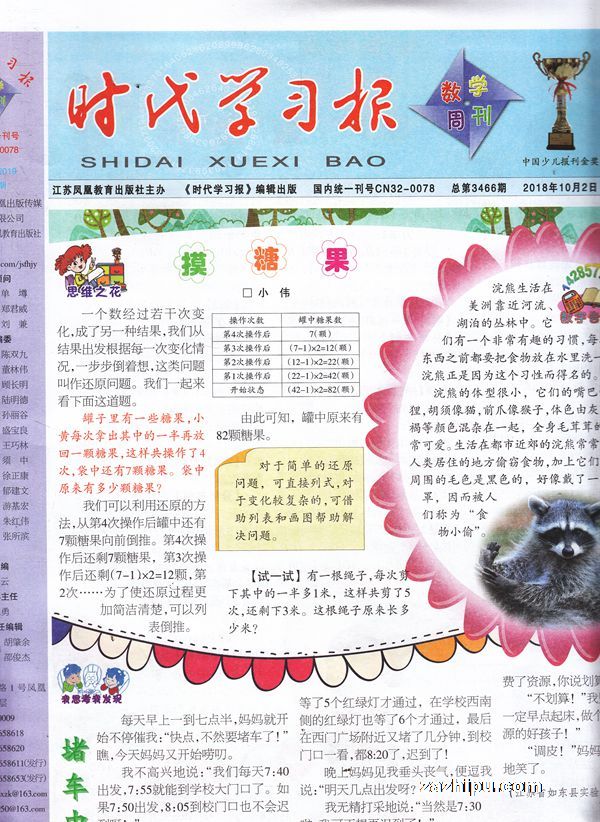 时代学习报
SHIDAI XUEXI BAO
数学
周刊
中国少儿报刊金奖
江苏凤凰教育出版社主办 《时代学习报》编辑出版 国内统一刊号CN32-0078 总第3466期 2018年10月2日
思维之花
摸糖果
□小 伟
一个数经过若干次变
化,成了另一种结果,我们从
结果出发根据每一次变化情
况,一步步倒着想,这类问题
叫作还原问题。我们一起来
看下面这道题。
罐子里有一些糖果,小
黄每次拿出其中的一半再放
回一颗糖果,这样共操作了4
次,袋中还有7颗糖果。袋中
原来有多少颗糖果?
我们可以利用还原的方
法,从第4次操作后罐中还有
7颗糖果向前倒推。第4次操
作后还剩7颗糖果，第3次操
作后还剩(7-1)×2=12颗,第
2次……为了使还原过程更
加简洁清楚,可以列
表倒推。
操作次数 罐中糖果数
第4次操作后 7(颗)
第3次操作后 (7-1)×2=12(颗)
第2次操作后 (12-1)×2=22(颗)
第1次操作后 (22-1)×2=42(颗)
开始状态 (42-1)×2=82(颗)
由此可知，罐中原来有
82颗糖果。
对于简单的还原
问题，可直接列式,对
于变化较复杂的,可借
助列表和画图帮助解
决问题。
【试一试】有一根绳子,每次剪
下其中的一半多1米，这样共剪了5
次,还剩下3米。这根绳子原来长多
少米?
142857
浣熊生活在
美洲靠近河流、
湖泊的丛林中。它
们有一个非常有趣的习惯,每
东西之前都要把食物放在水里洗一
浣熊正是因为这个习性而得名的。
浣熊的体型很小，它们的嘴巴
狸,胡须像猫,前爪像猴子,体色由灰
褐等颜色混杂在一起，全身毛茸茸的
常可爱。生活在都市近郊的浣熊常常
人类居住的地方偷窃食物,加上它们
周围的毛色是黑色的，好像戴了一
罩，因而被人
们称为“食
物小偷”。
我思考我发现
堵
车
每天早上一到七点半,妈妈就开
始不停催我:“快点,不然要堵车了!”
瞧,今天妈妈又开始唠叨。
我不高兴地说:“我们每天7:40
出发,7:55就能到学校大门口了。如
果7:50出发,8:05到校门口也不会迟
等了5个红绿灯才通过，在学校西南
侧的红绿灯也等了6个才通过，最后
在西门广场附近又堵了几分钟,到校
门口一看,都8:20了,迟到了!
晚上妈妈见我垂头丧气,便逗我
说:“明天几点出发呀?
我无精打采地说:“当然是7:30
费了资源,你说划算
“不划算!”我
一定早点起床,做个
源的好孩子!”
“调皮!”妈妈
地笑了。
(江苏省如东县实验
一刊号
0078
2019
凰出版传媒
限公司
凰教育出版社
.com/jsfhjy
顾问
单 墫
郑君威
刘 兼
编委
陈双九
董林伟
顾长明
陆明德
孙丽谷
盛宝良
王巧林
须 中
徐正康
郁建文
游基宏
朱红伟
张所滨
编
云
主任
勇
任编辑
胡肇余
邵俊杰
路1号凤凰
层
0009
658618
658620
658611(发行)
658653(发行)
xzk@163.com
50@163.com
zazhipu.com